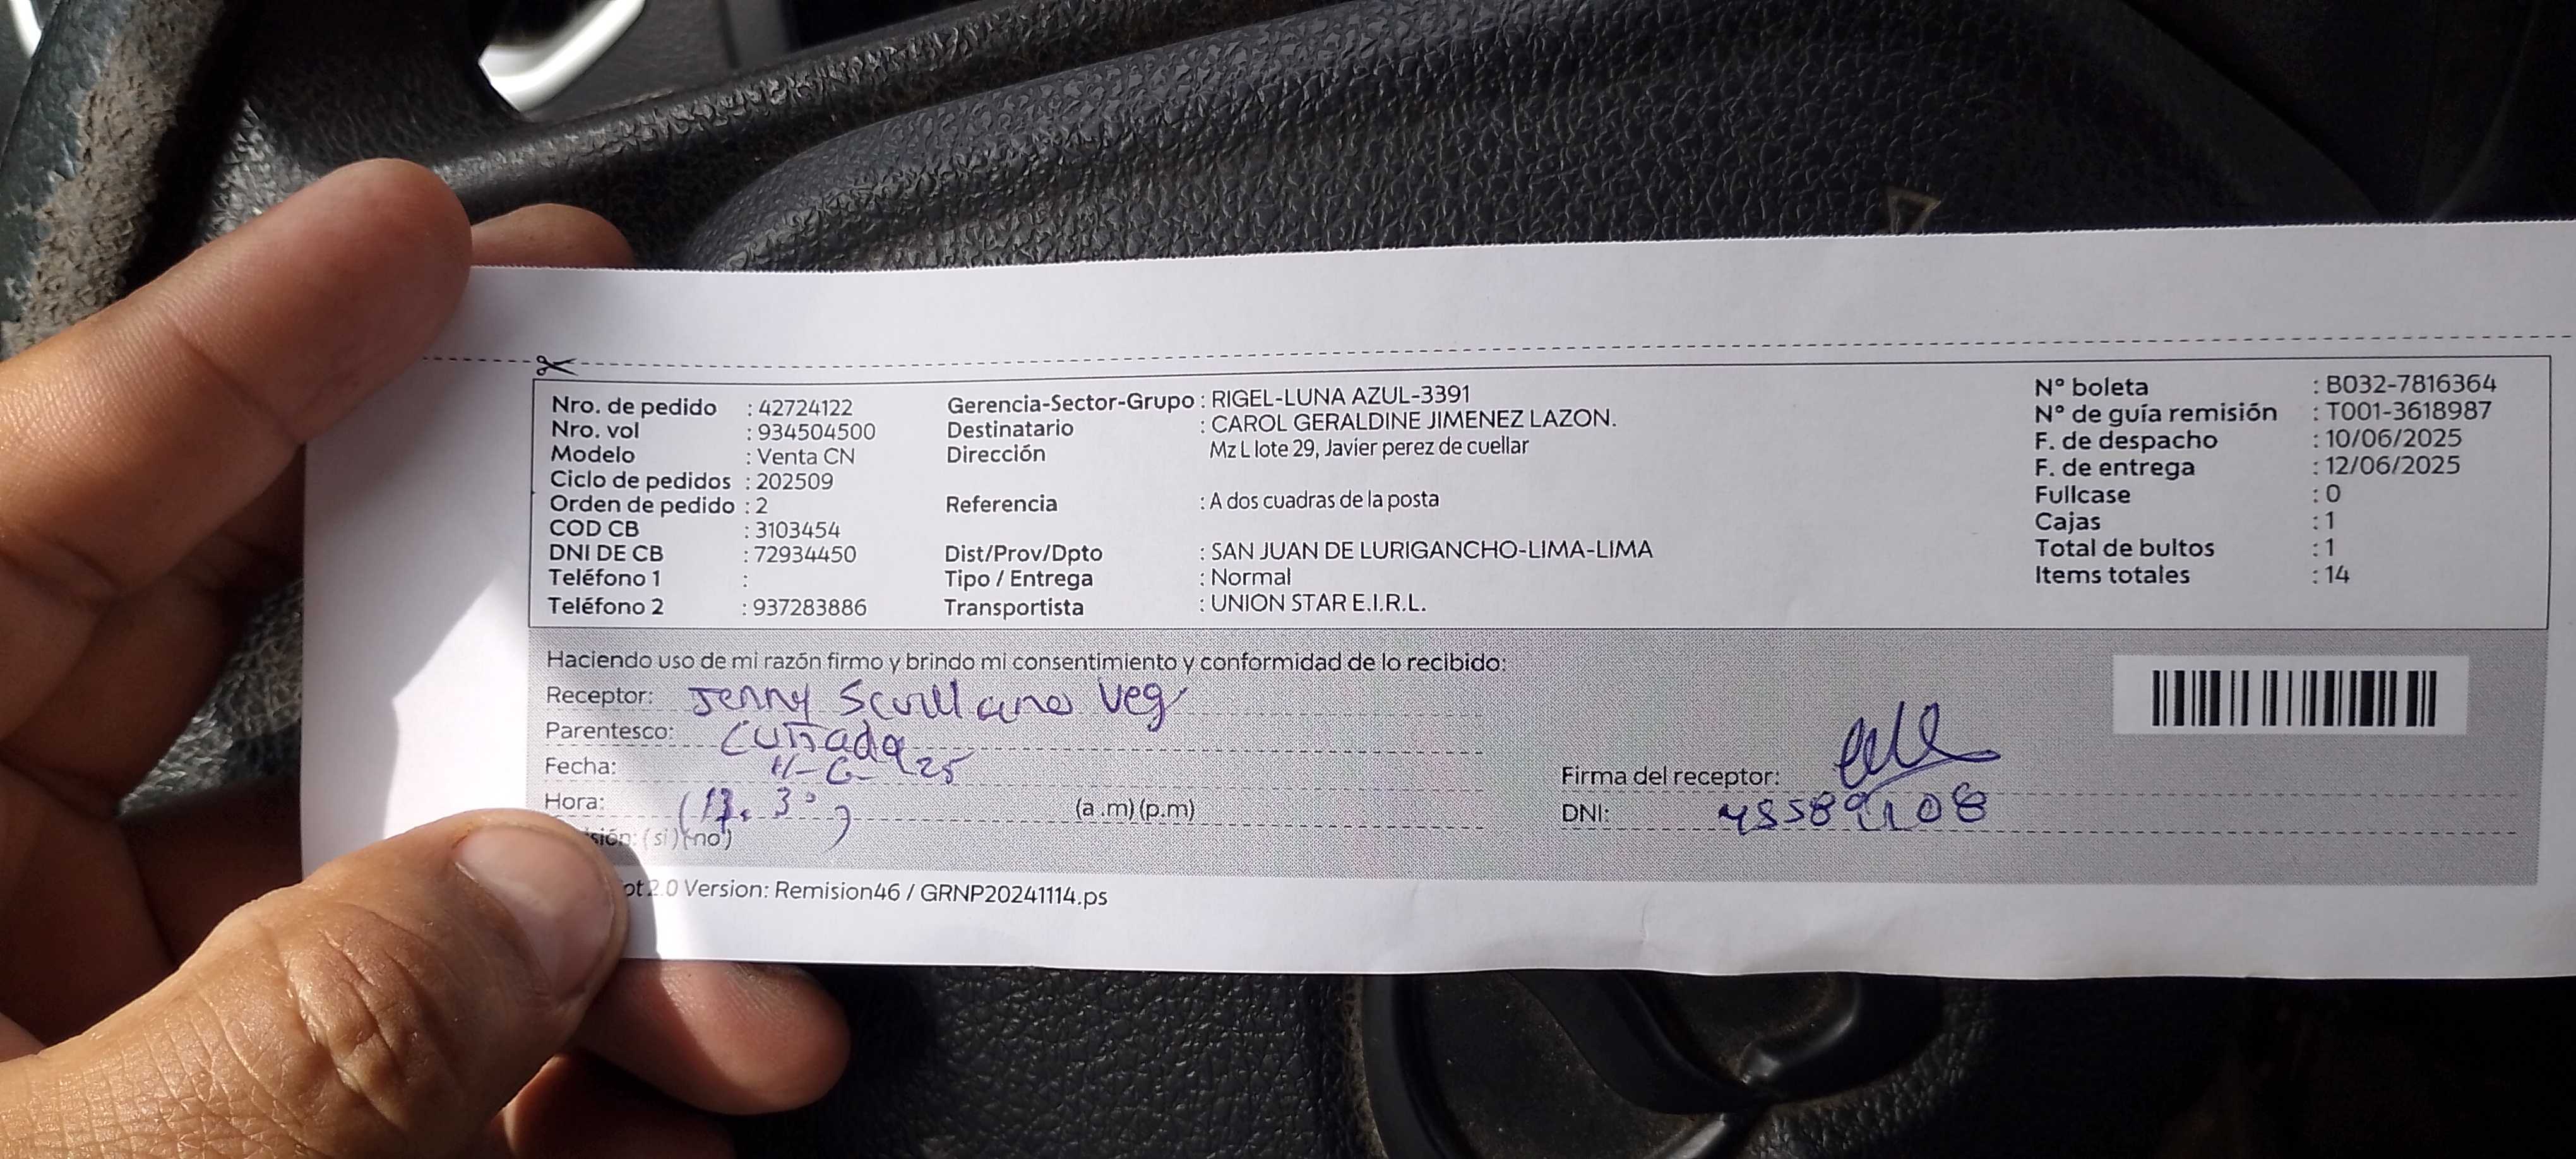 Nro. de pedido : 42724122 Gerencia-Sector-Grupo : RIGEL-LUNA AZUL-3391 N° boleta : B032-7816364
Nro. vol : 934504500 Destinatario : CAROL GERALDINE JIMENEZ LAZON. N° de guía remisión : T001-3618987
Modelo : Venta CN Dirección Mz L lote 29, Javier perez de cuellar F. de despacho : 10/06/2025
Ciclo de pedidos : 202509 F. de entrega : 12/06/2025
Orden de pedido : 2 Referencia : A dos cuadras de la posta Fullcase : 0
COD CB : 3103454 Cajas : 1
DNI DE CB : 72934450 Dist/Prov/Dpto : SAN JUAN DE LURIGANCHO-LIMA-LIMA Total de bultos : 1
Teléfono 1 : Tipo / Entrega : Normal Items totales : 14
Teléfono 2 : 937283886 Transportista : UNION STAR E.I.R.L.
Haciendo uso de mi razón firmo y brindo mi consentimiento y conformidad de lo recibido:
Receptor: Jenny
Parentesco: Cuñada
Fecha:
Hora: (a .m) (p.m)
Firma del receptor:
DNI:
(si) (no)
2.0 Version: Remision46 / GRNP20241114.ps